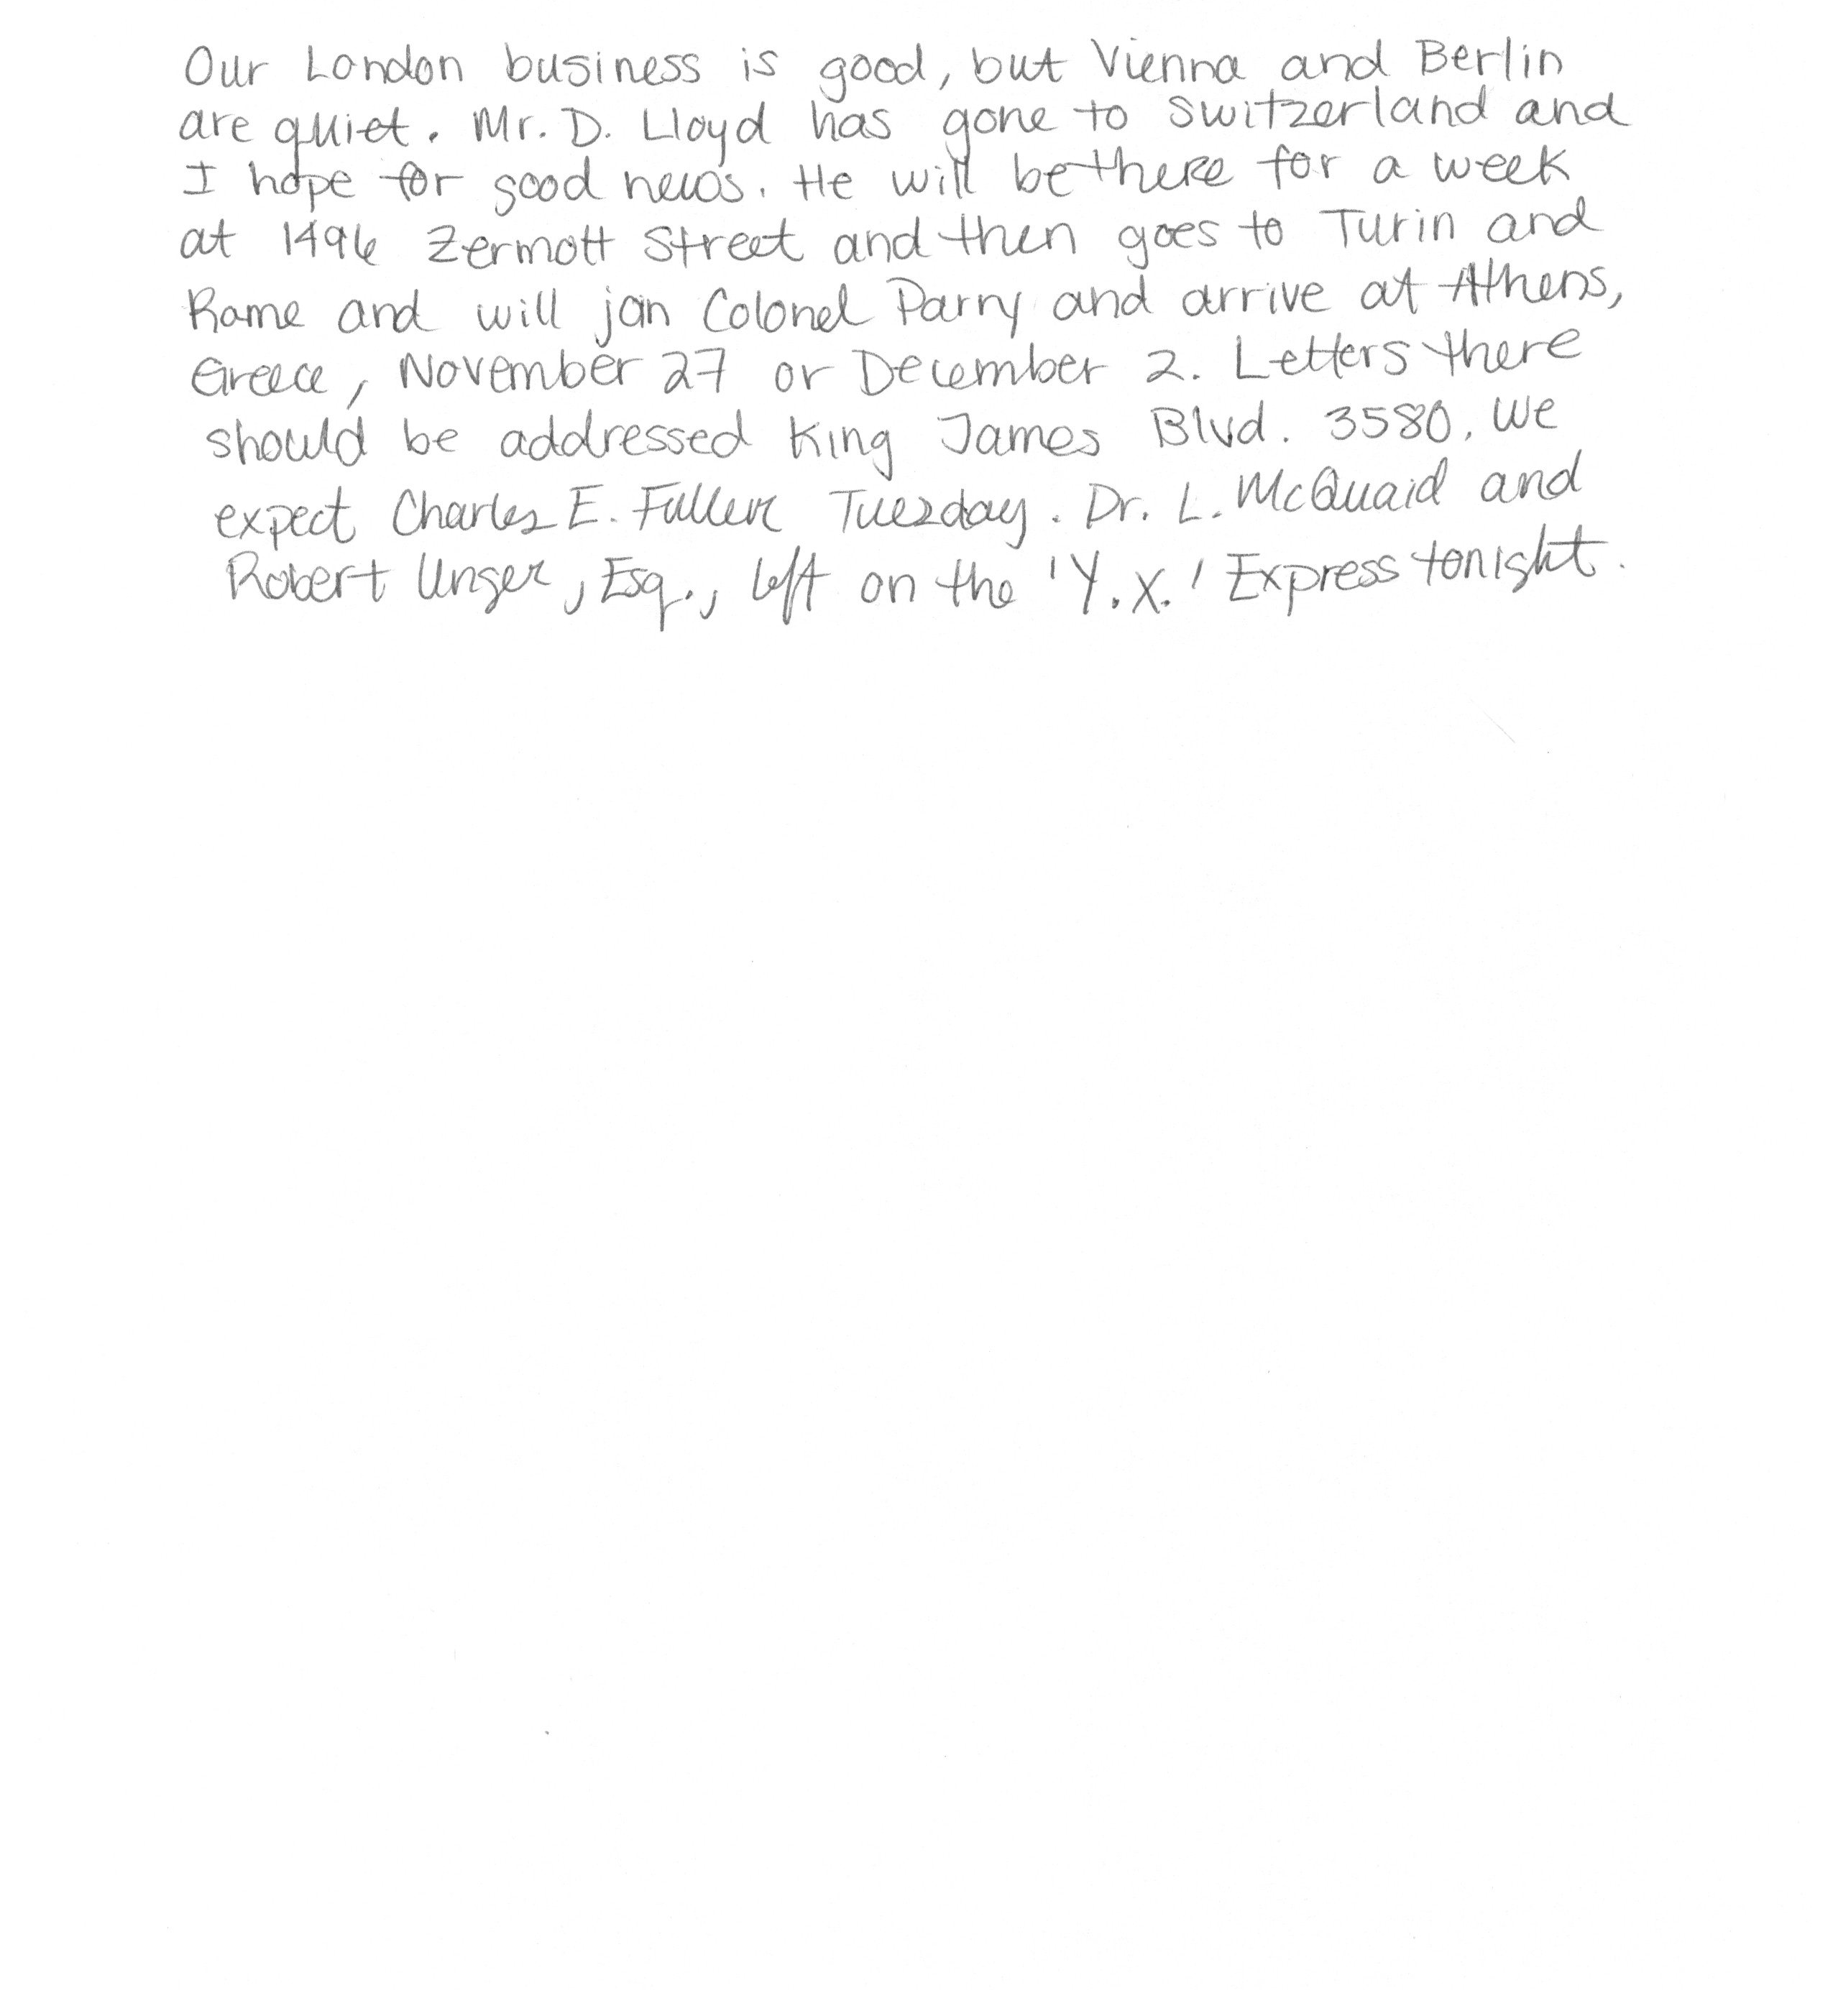 Our London business is good, but Vienna and Berlin
are quiet. Mr. D. Lloyd has gone to Switzerland and
I hope for good news. He will be there for a week
at 1496 Zermott Street and then goes to Turin and
Rome and will join Colonel Parry and arrive at Athens,
Greece, November 27 or December 2. Letters there
should be addressed King James Blvd. 3580. We
expect Charles E. Fuller Tuesday. Dr. L. McQuaid and
Robert Unger, Esq., left on the 'Y.X.' Express tonight.